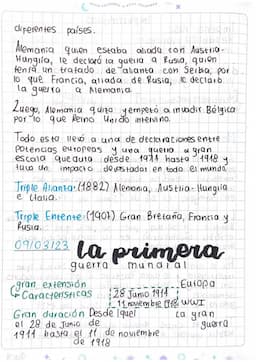 diferentes países.
Alemania quien estaba aliada con Austria-
Hungría, le declaró la guerra a Rusia, quien
tenía un tratado de alianza con Serbia, por
lo que Francia, aliada de Rusia, le declaró
la guerra a Alemania
Luego, Alemania quiso y empezó a invadir Bélgica
por lo que Reino Unido intervino.
Todo esto llevó a una de declaraciones entre
potencias europeas y una guerra a gran
escala que duta desde 1914 hasta 1918 y
tuvo un impacto devastador en todo el mundo
Triple Alianza: (1882) Alemania, Austria-Hungría
e Italia.
Triple Entente: (1907) Gran Bretaña, Francia y
Rusia.
09/03/23 la primera
guerra mundial
gran extensión Europa
Características 28 Junio 1914
11 noviembre 1918 WWI
Gran duración Desde la gran
el 28 de Junio de guerra
1914 hasta el 11 de noviembre
de 1918